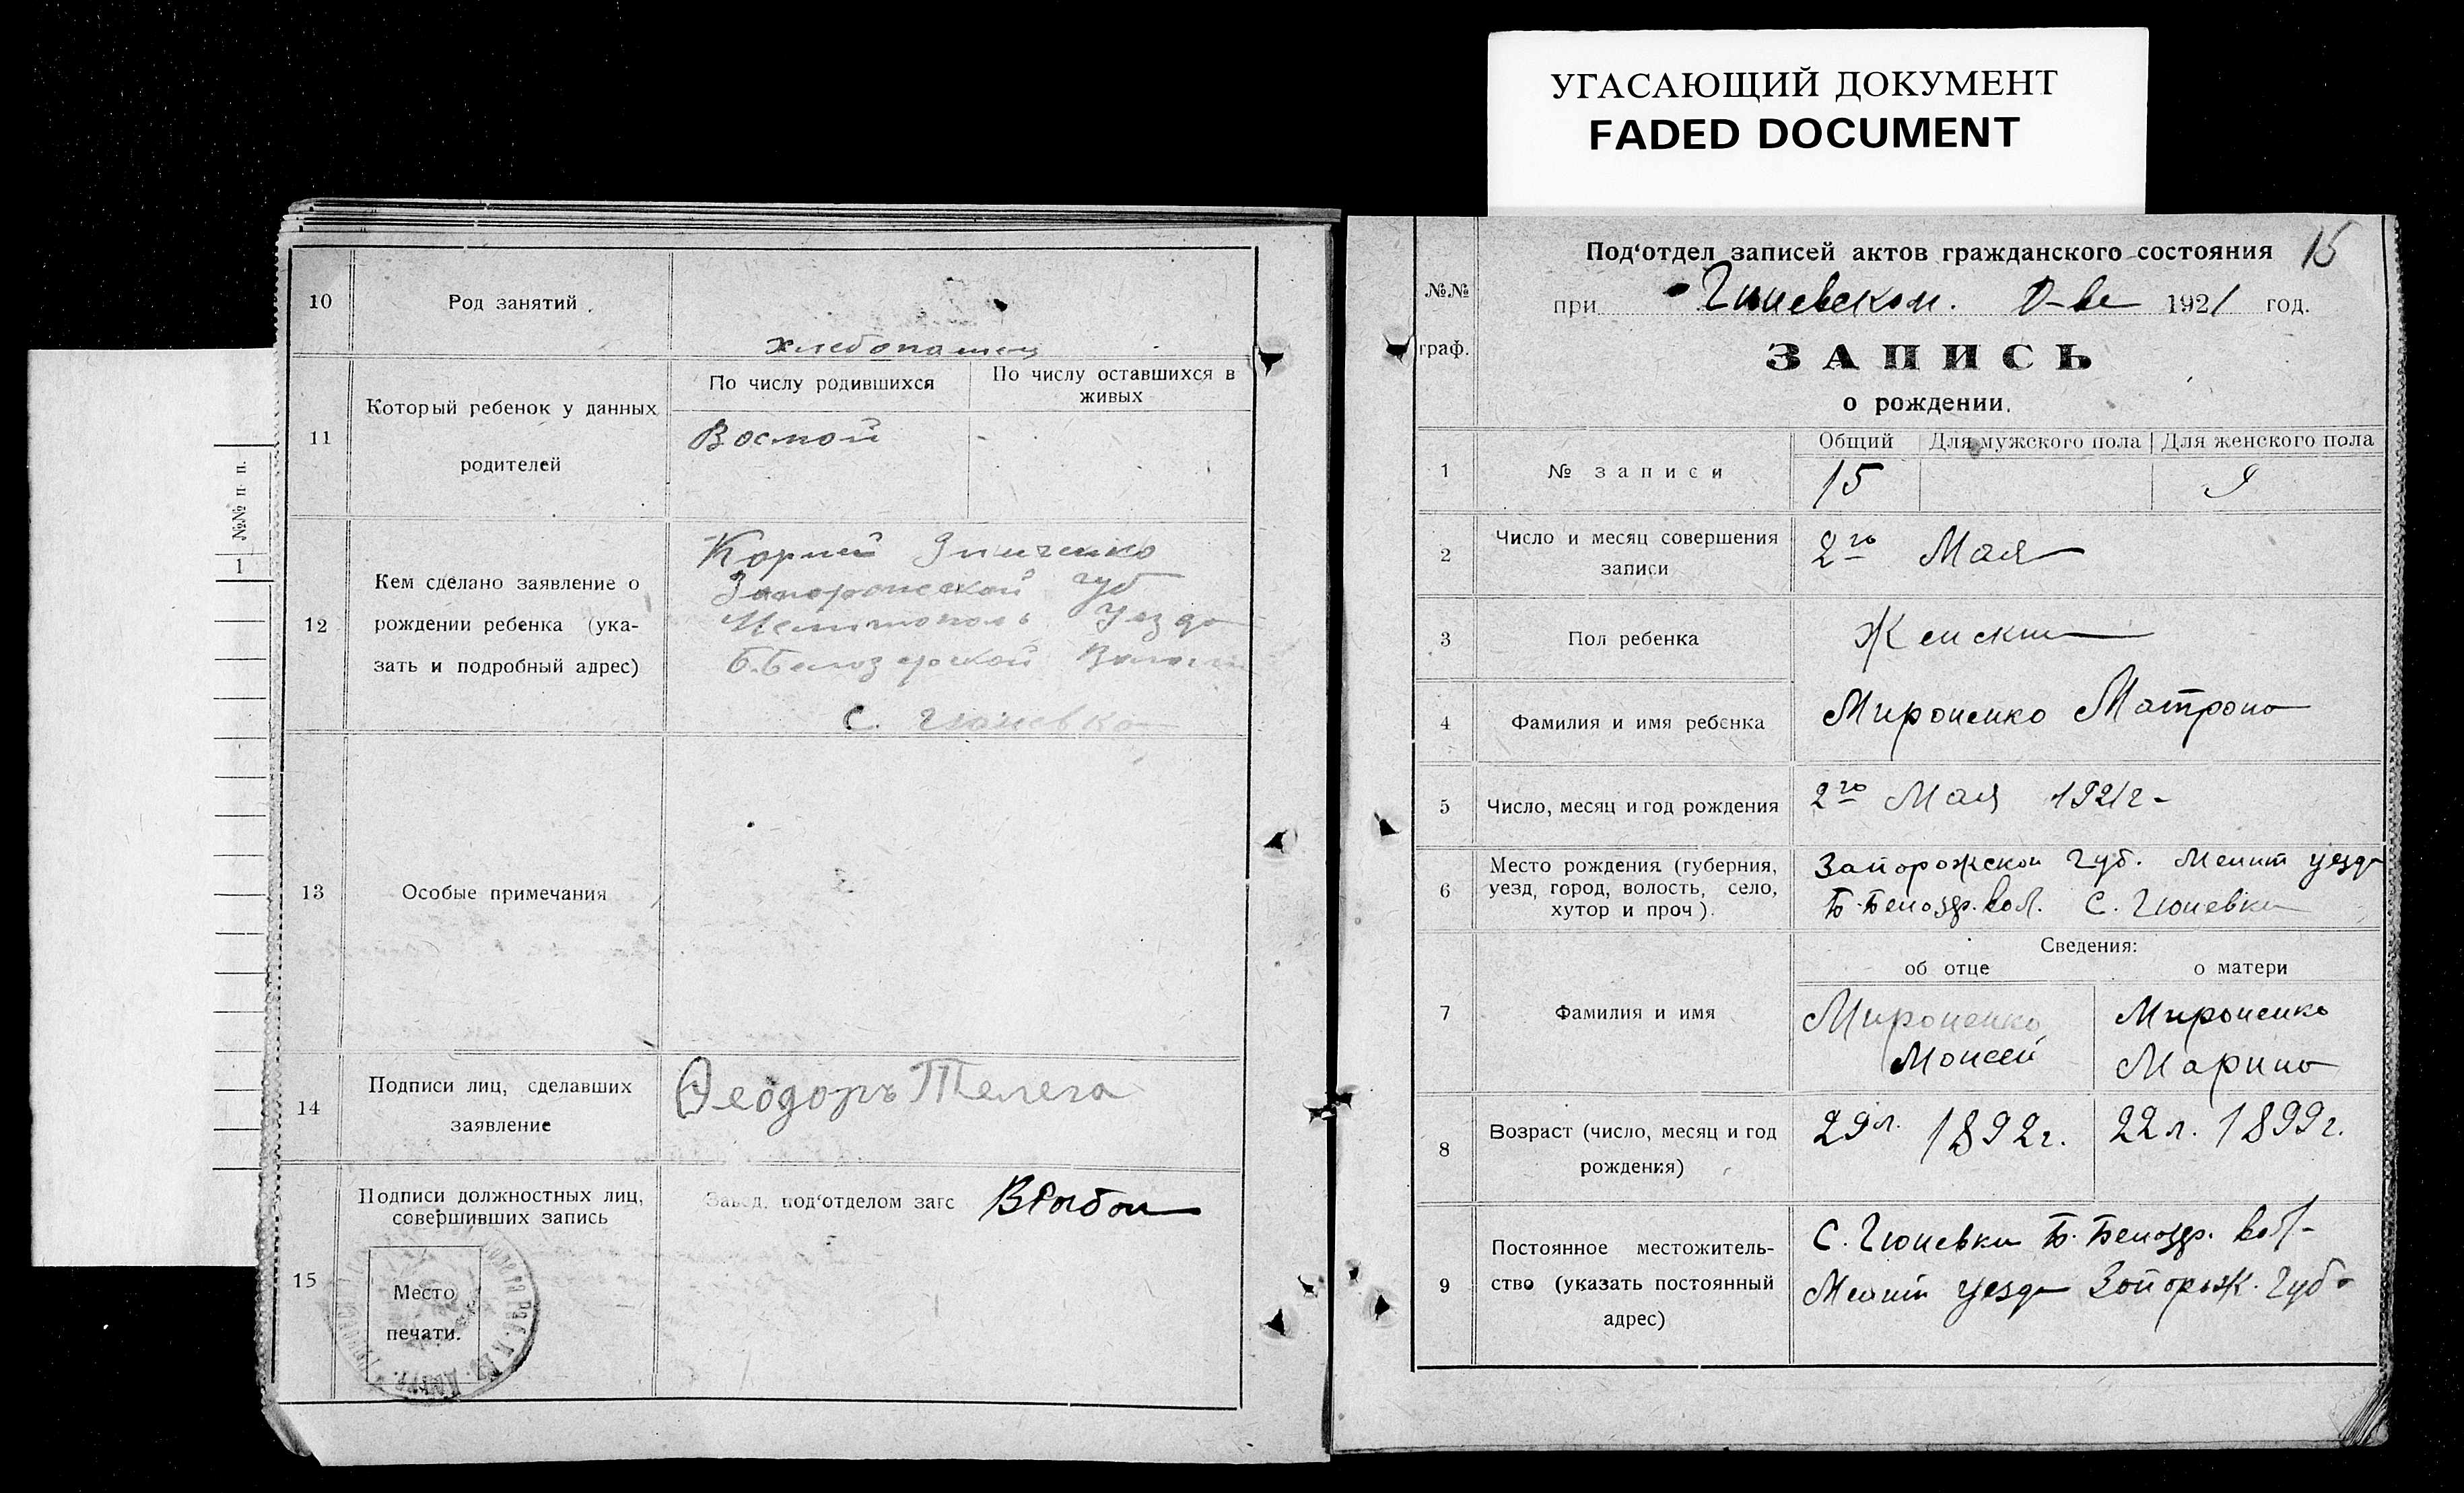 УГАСАЮЩИЙ ДОКУМЕНТ
FADED DOCUMENT
№№ п п.
1
10
Род занятий.
хлебопашец
11
Который ребенок у данных
родителей
По числу родившихся
По числу оставшихся в
живых
Восмой
12
Кем сделано заявление о
рождении ребенка (ука-
зать и подробный адрес)
Корней Зинченко
Запорожской губ
Мелитополь Уезда
Б. Белозерской
С. Гюневка
13
Особые примечания
14
Подписи лиц, сделавших
заявление
Ѳеодоръ Телега
15
Подписи должностных лиц,
совершивших запись
Место
печати.
Завед. под‘отделом загс
15
№№
граф.
Под‘отдел записей актов гражданского состояния
при Гюневском. 1921 год.
ЗАПИСЬ
о рождении.
1
№ записи
Общий
Для мужского пола
Для женского пола
15
9
2
Число и месяц совершения
записи
2го Мая
3
Пол ребенка
Женский
4
Фамилия и имя ребенка
Мироненко Матрона
5
Число, месяц и год рождения
2го Мая 1921 г-
6
Место рождения (губерния,
уезд, город, волость, село,
хутор и проч).
Запорожской Губ. Мелит уезда
Б. Белозер. вол. С. Гюневки
Сведения:
об отце
о матери
7
Фамилия и имя
Мироненко
Моисей
Мироненко
Марина
8
Возраст (число, месяц и год
рождения)
29 л. 1892 г.
22 л. 1899 г.
9
Постоянное местожитель-
ство (указать постоянный
адрес)
С. Гюневки Б. Белозер. вол-
Мелит уезда Запорож. Губ.